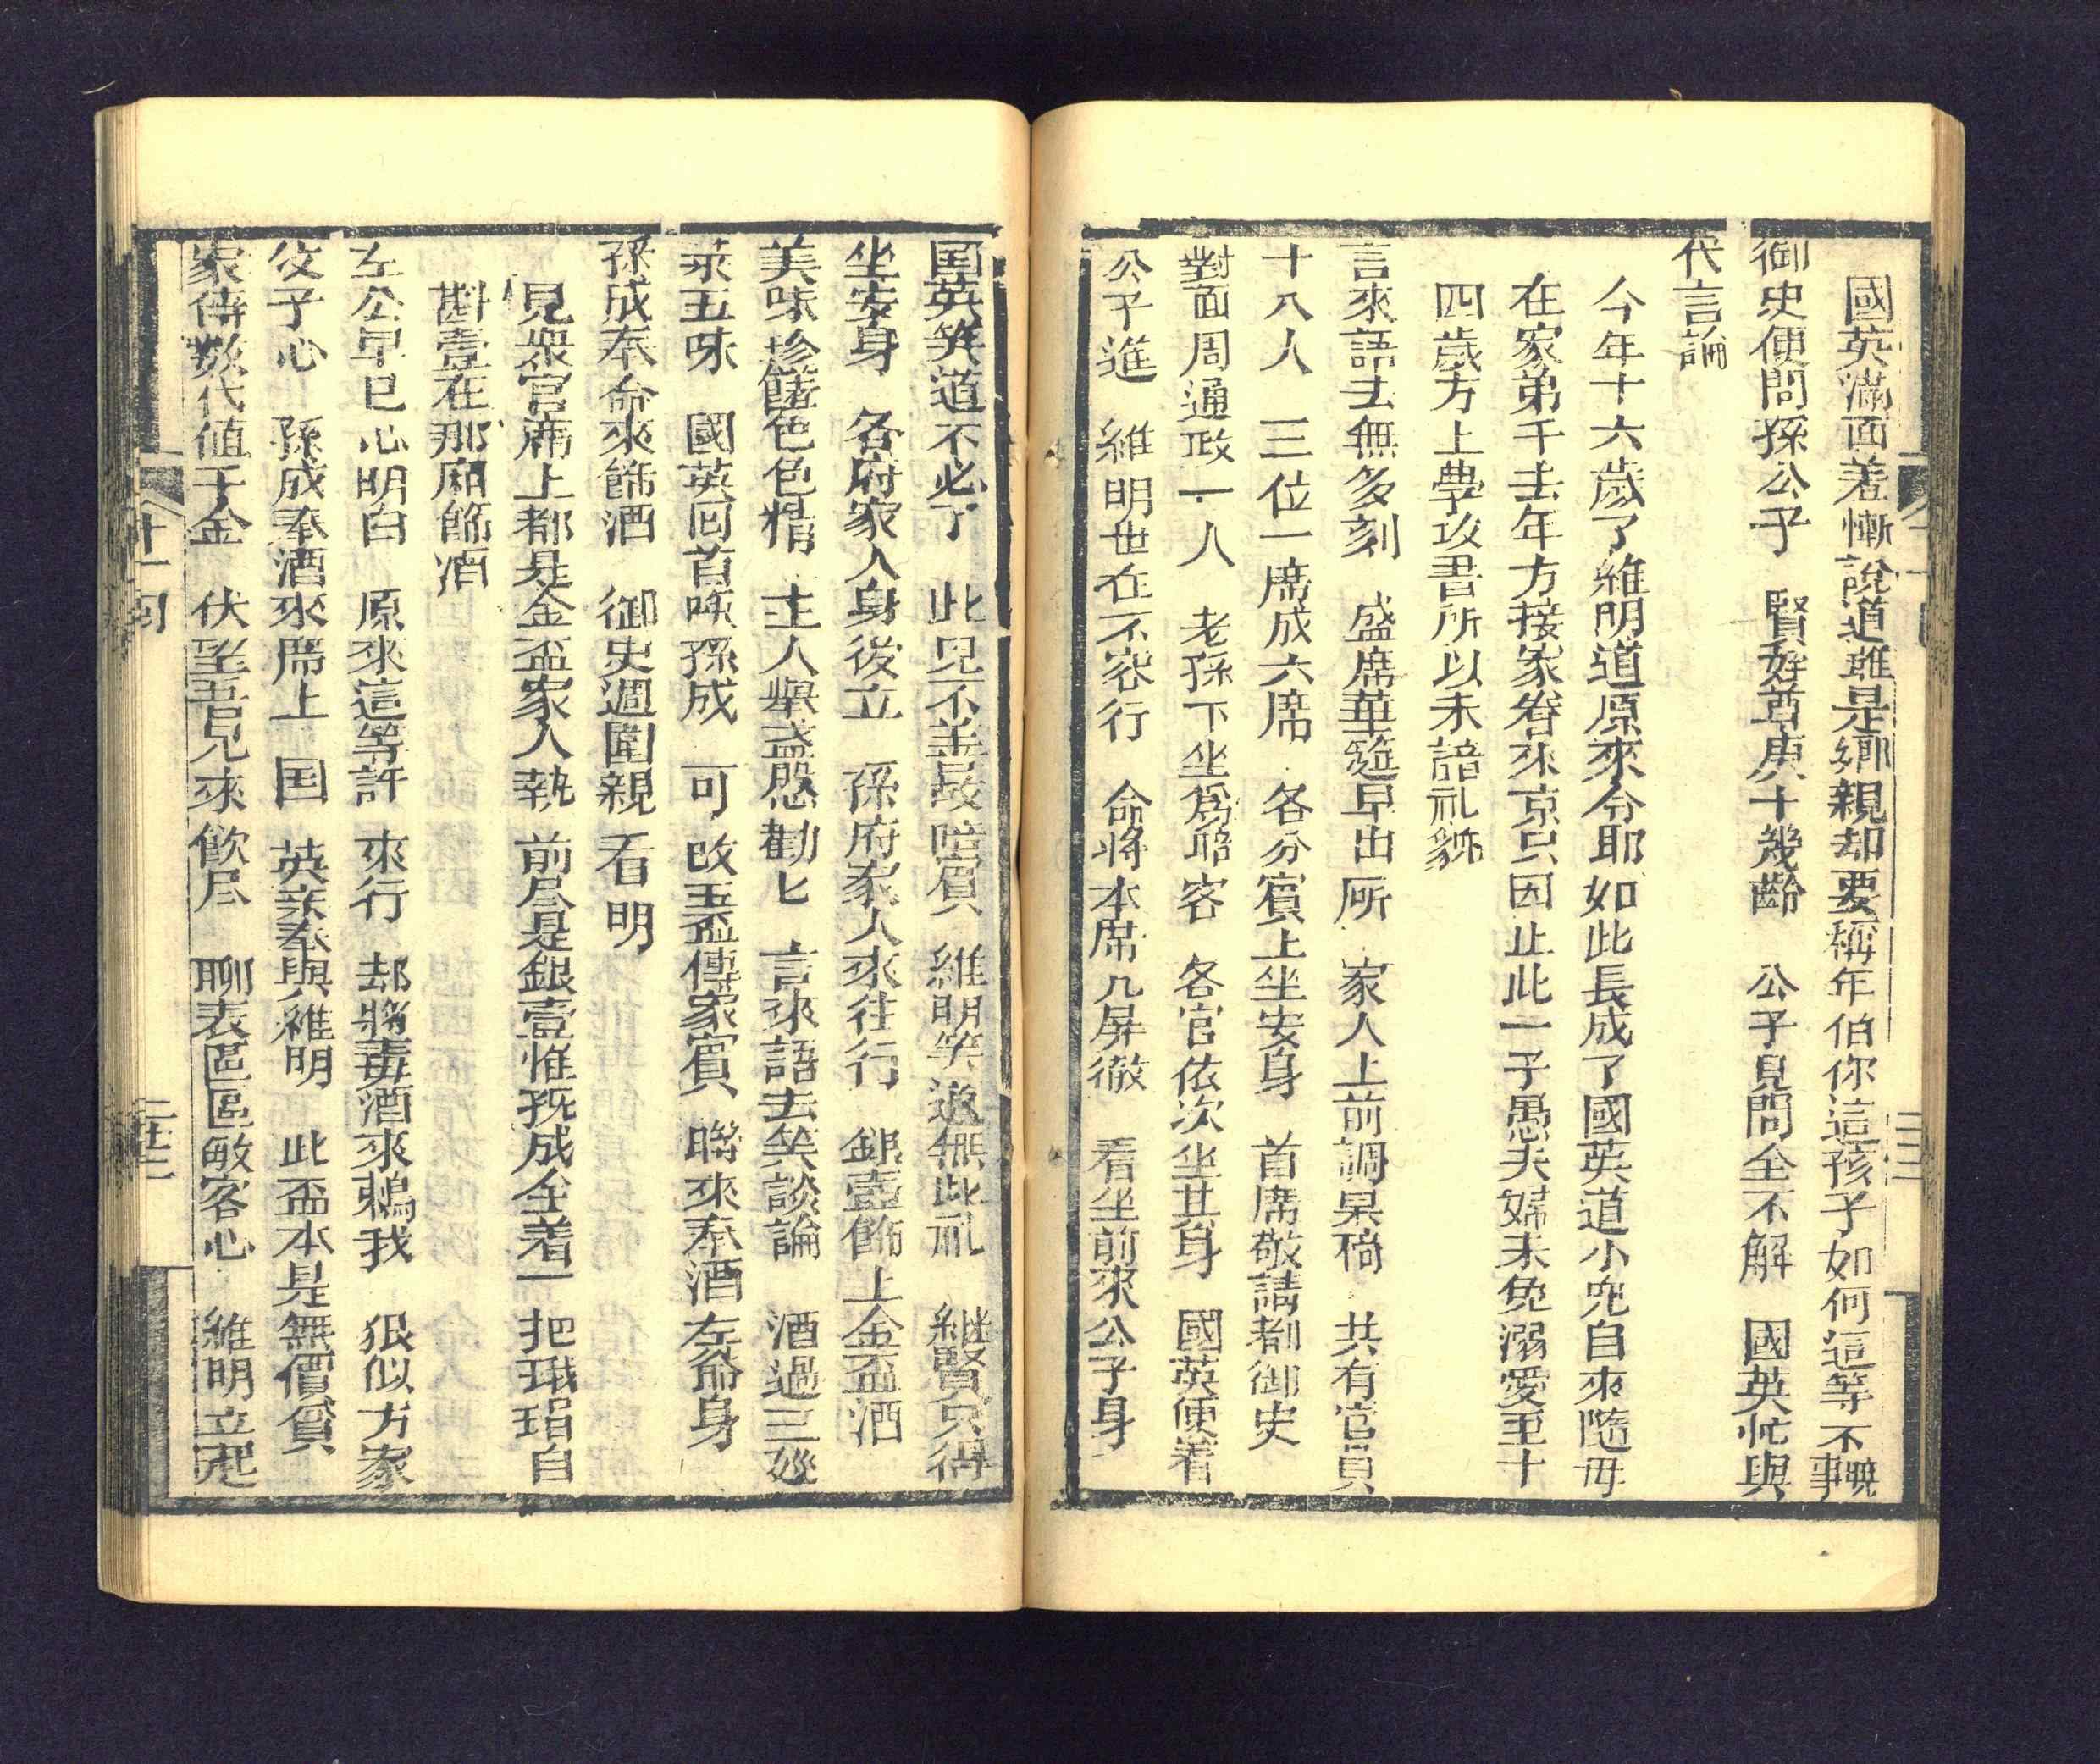 國英滿面羞慚說道雖是鄉親却要稱年伯你這孩子如何這等不曉事
御史便問孫公子　賢姪尊庚十幾齡　公子見問全不解　國英忙與
代言論
今年十六歲了維明道原來令耶如此長成了國英道小兒自來隨母
在家弟于去年方接家眷來京只因止此一子愚夫婦未免溺愛至十
四歲方上學攻書所以未諳礼貌
言來語去無多刻　盛席華筵早出㕔　家人上前調桌椅　共有官員
十八人　三位一席成六席　各分賓上坐安身　首席敬請都御史
對面周通政一人　老孫下坐爲陪客　各官依次坐其身　國英便着
公子進　維明世在不容行　命將本席几屏徹　看坐前來公子身
国英笑道不必了　此兒不善最陪賓　維明笑道無此礼　継賢只得
坐安身　各府家人身後立　孫府家人來往行　銀壺餙上金盃酒
美味珍饈色色精　主人舉盞慇勸匕　言來語去笑談論　酒過三廵
菜五味　國英回首喚孫成　可改玉盃傳家賓　聯來奉酒左爺身
孫成奉命來餙酒　御史週圍親看明
見衆官席上都是金盃家人執　前尽是銀壺惟孫成全着一把玳瑁自
斟壺在那厢餙酒
左公早已心明白　原來這等訐來行　却將毒酒來鴆我　狠似方家
父子心　孫成奉酒來席上　国英亲奉與維明　此盃本是無價寶
家传数代值千金　伏望吾兄來飲尽　聊表區區敏客心　維明立起
廿一囘
二十三